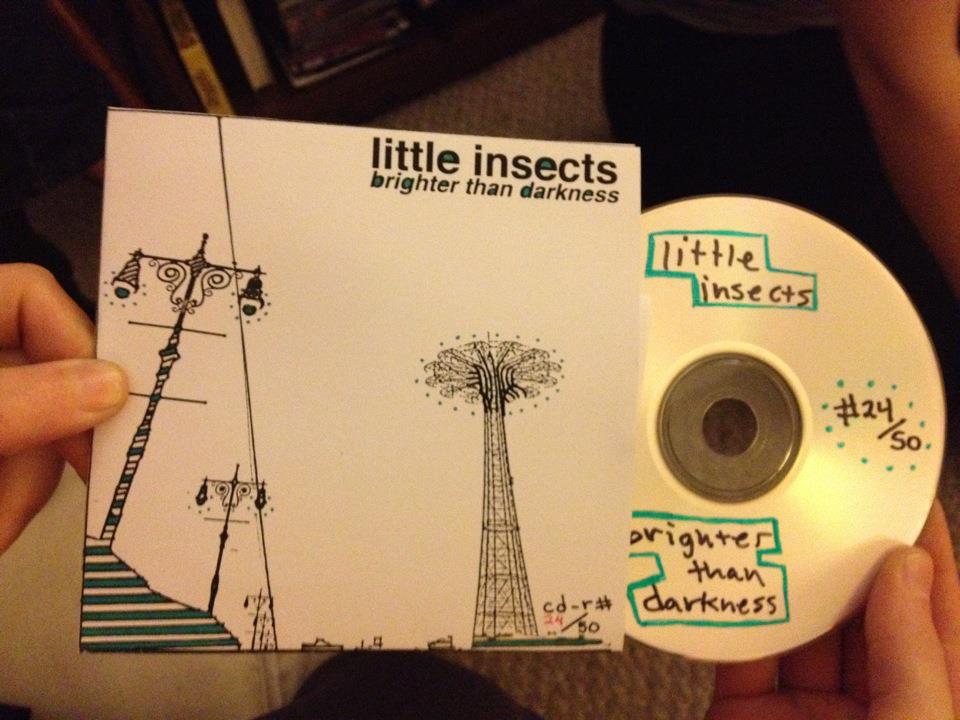 little insects
brighter than darkness
cd-r#
24/50
little
insects
#24/50
brighter
than
darkness